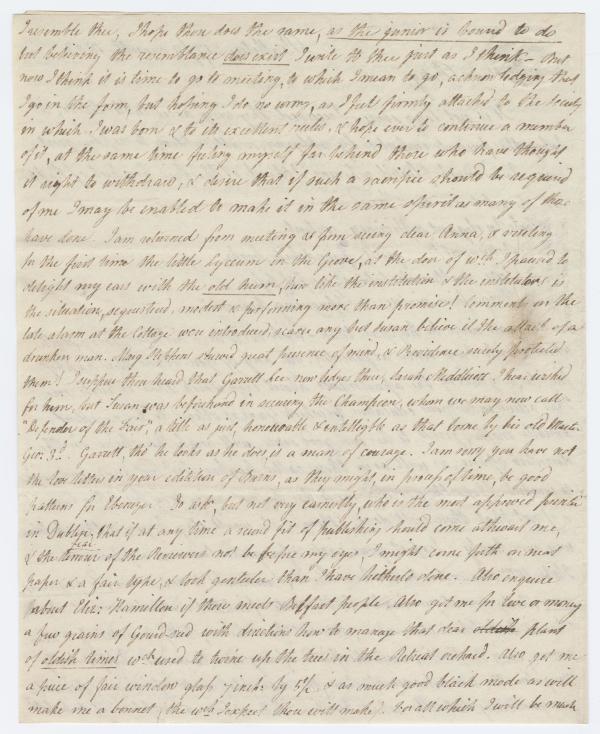 I resemble thee, I hope thou does the same, as the junior is bound to do
but believing the resemblance does exist I write to thee just as I think — But
now I think it is time to go to meeting, to which I mean to go, acknowledging that
I go in the form, but hoping I do no wrong, as I feel firmly attached to the Society
in which I was born & to its excellent rules, & hope ever to continue a member
of it, at the same time feeling myself far behind those who have thought
it right to withdraw, & desire that if such a sacrifice should be required
of me I may be enabled to make it in the same spirit as many of those
have done. I am returned from meeting & from seeing dear Anna, & visiting
for the first time the little Lyceum in the Grove, at the door of wch. I paused to
delight my ears with the old hum, how like the institution & the institutors is
the situation, sequestered, modest & performing more than promise! Comments on the
late alarm at the Cottage were introduced, scarce any but Susan believe it the attack of a
drunken man. Mary Stephens shewed great presence of mind, & Providence surely protected
them! I suppose thou heard that Garrett Lee now lodges there, Sarah Middleton I hear wished
for him, but Susan was beforehand in securing the Champion, whom we may now call
"Defender of the Fair", a title as just, honourable & intelligible as that borne by his old Master
Geo: 3d. Garrett, tho' he looks as he does is a man of courage. I am sorry you have not
the love letters in your edition of Burns, as they might, in process of time, be good
patterns for Ebenezer. To ask, but not very earnestly, who is the most approved printer
in Dublin, that if at any time a second fit of publishing should come athwart me,
& the fear of the Reviewers not be before my eyes, I might come forth on neat
paper & a fair type, & look genteeler than I have hitherto done. Also enquire
about Eliz: Hamilton if thou meets Belfast people. Also get me for love or money
a few grains of Gourd seed with directions how to manage that dear oldish plant
of oldish times wch. used to twine up the trees in the Retreat orchard. Also get me
a piece of fair window glass 7 inch: by 5½ & as much good black mode as will
make me a bonnet, (the wch. I expect thou will make). For all which I will be much